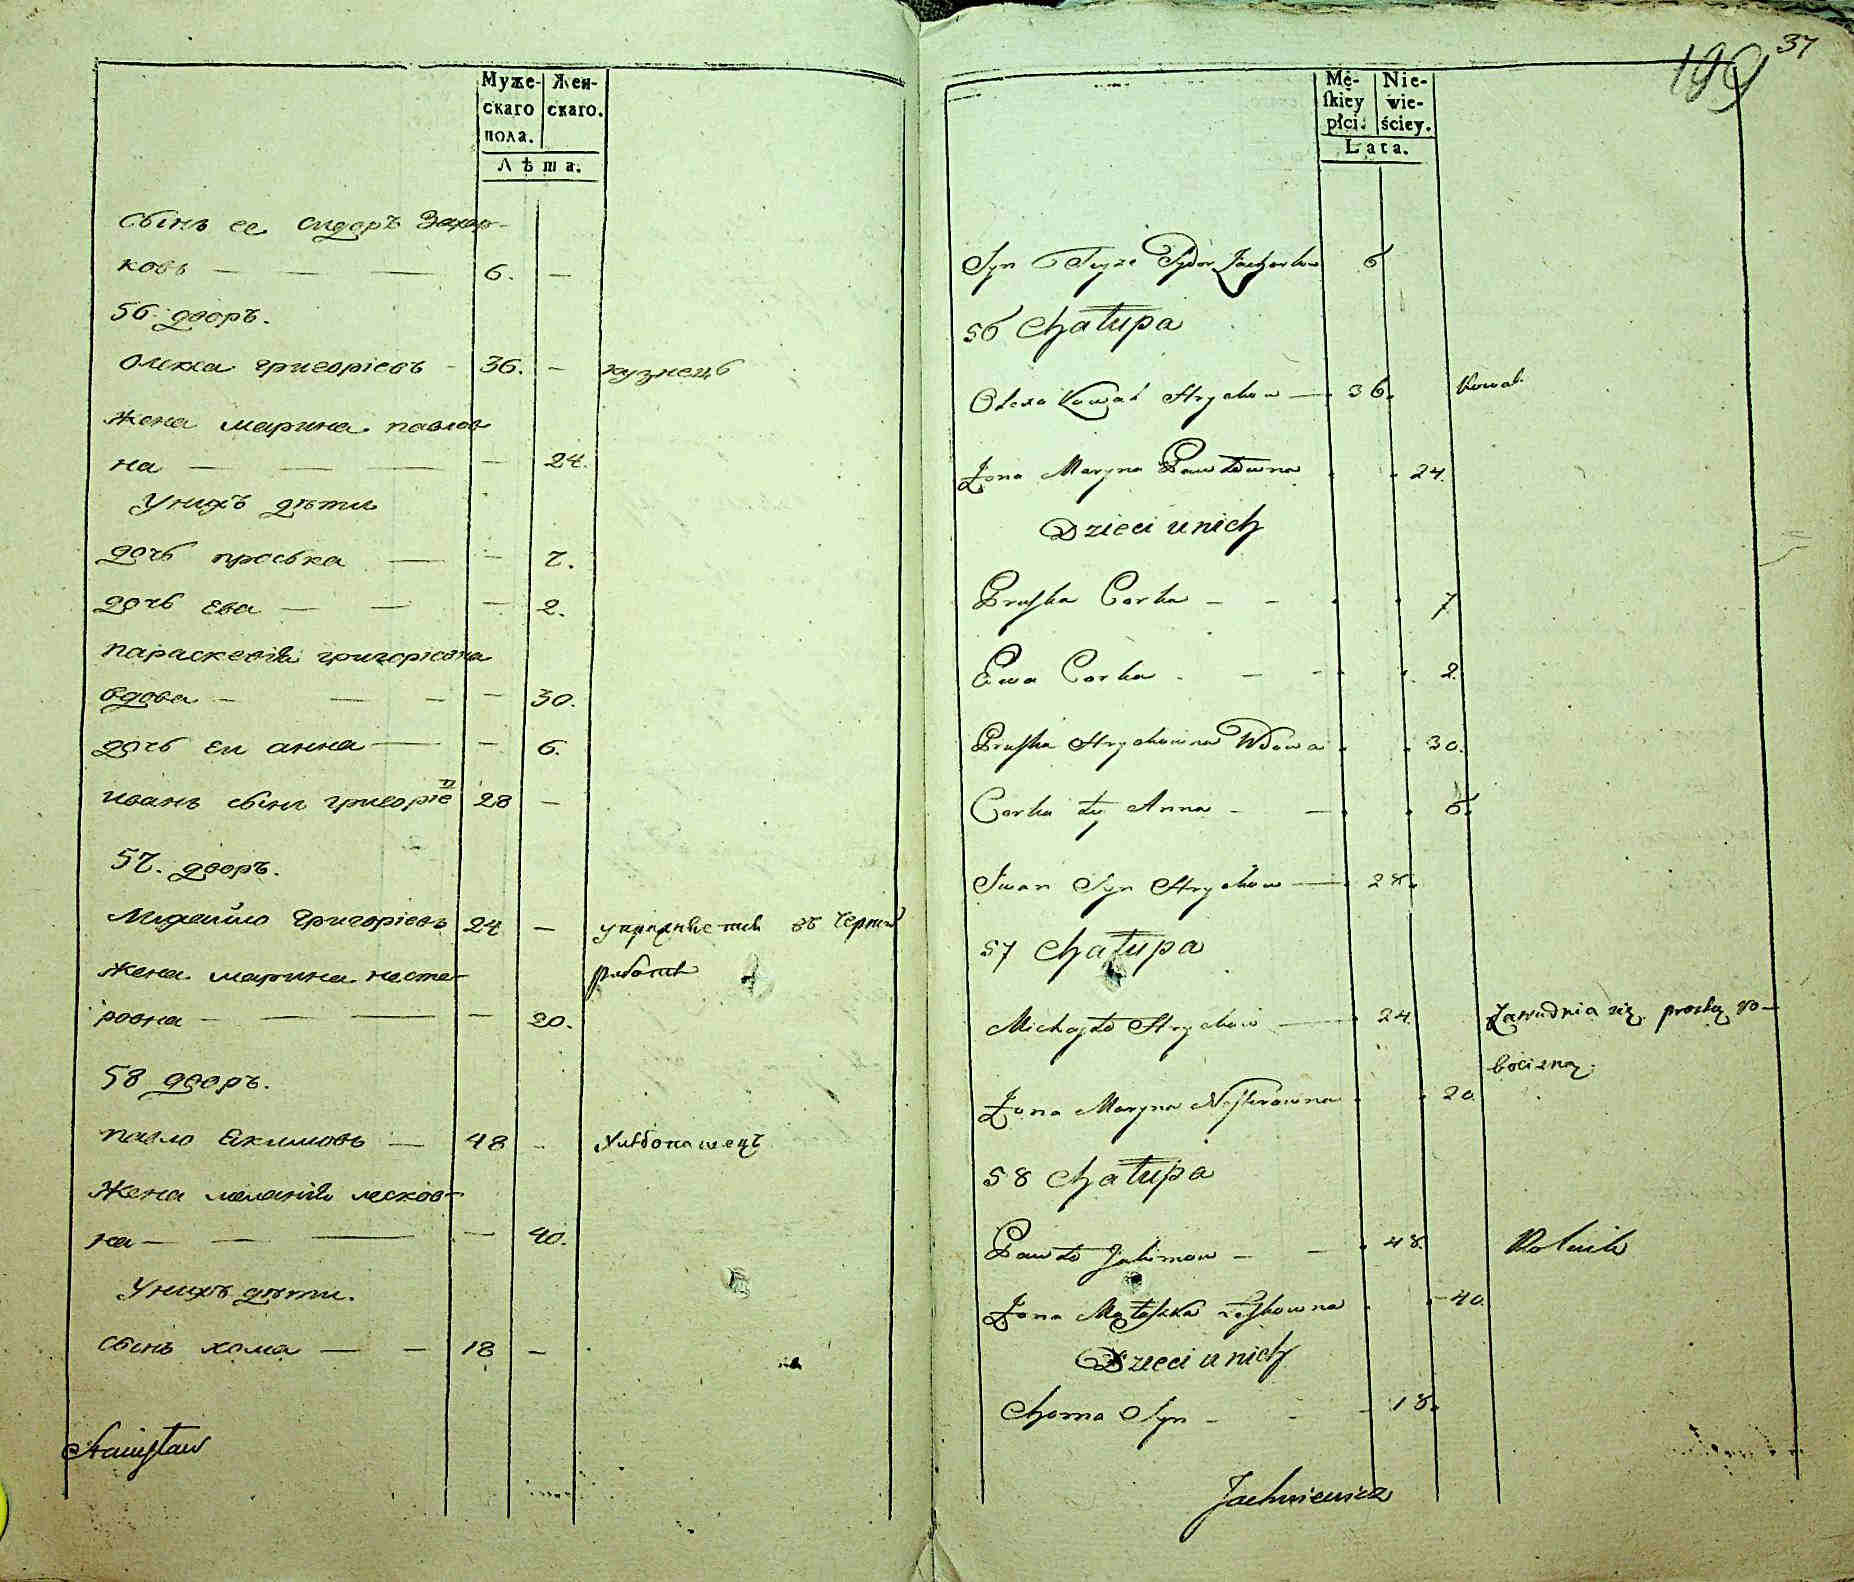 Муже-
скаго
пола.
Жен-
скаго.
Лѣта.
сынъ ее сидоръ Захар-
ковъ — — — 6. —
56. дворъ.
олекса григоріевъ - 36. — кузнецъ
жена марина павлов
на — — — — 24.
У нихъ дѣти
дочь проська — — 7.
дочь ева — — — 2.
параскевія григоріевна
вдова — — — — 30.
дочь еи анна — — 6.
иванъ сынъ григоріев 28 —
57. дворъ.
Михайло григоріевъ 24 — упражняется въ черной
жена марина несте- работе
ровна — — — — 20.
58 дворъ.
павло Якимовъ — 48 - хлебопашецъ
жена меланія лесков-
на — — — — 40.
У нихъ дѣти.
сынъ хома — — 18 —
Stanisław
37
199
Mę-
skiey
płci.
Nie-
wie-
ściey.
Lata.
Syn Teyże Sydor Zacharkow 6
56 Chałupa
Olexa Kowal Hrychow — 36. Kowal
Żona Maryna Pawłowna 24.
Dzieci u nich
Pruska Corka - - 7
Ewa Corka - - - 2.
Pruska Hrychowna Wdowa 30.
Corka tey Anna - — 6.
Iwan Syn Hrychow — 28.
57 Chałupa
Michayło Hrychow — 24. Zatrudnia się prostą ro-
bocizną.
Żona Maryna Nesterowna 20.
58 Chałupa
Pawło Jakimow - - 48. Rolnik
Żona Małaszka Leskowna - 40.
Dzieci u nich
Choma Syn - - - 18.
Jachniewicz